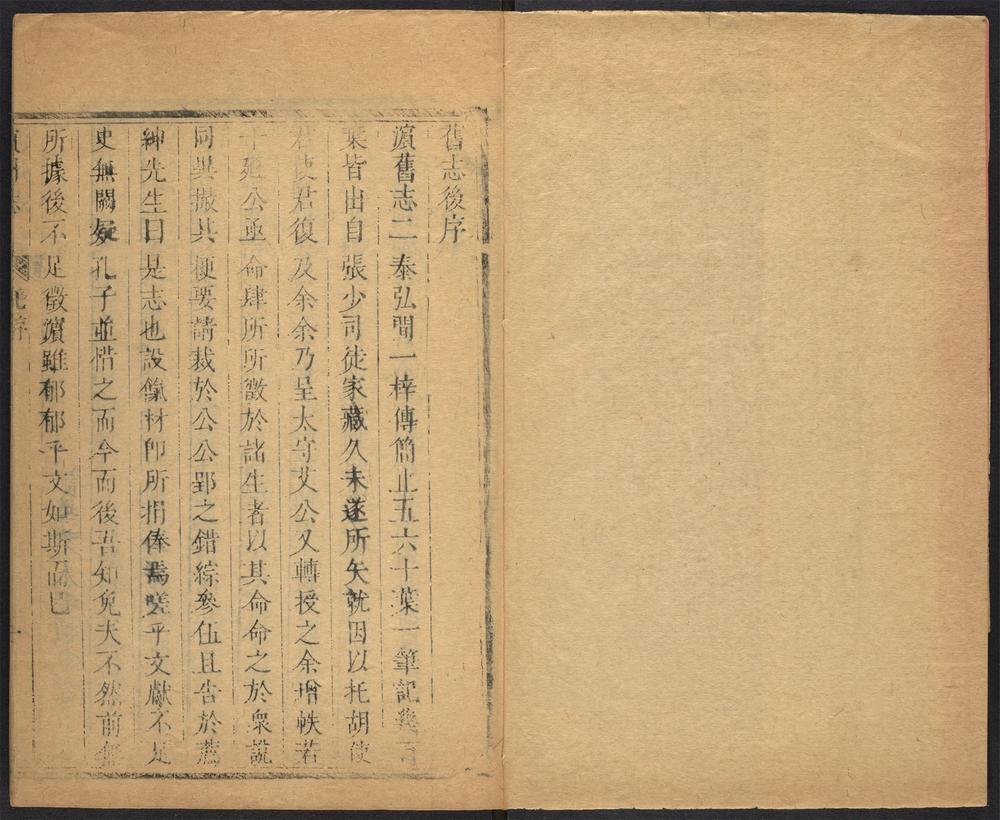 舊志後序
濵舊志二泰弘間一梓傳簡止五六十葉一筆記幾百
葉皆出自張少司徒家藏久未遂所矢就因以托胡使
君使君復及余余乃呈太守艾公又轉授之余增帙若
干延公亟命肆所所徵於諸生者以其命命之於衆說
同異撮其梗要請裁於公公郢之錯綜參伍且告於薦
紳先生曰是志也設像材即所捐俸焉嗟乎文獻不足
史無闕疑孔子並惜之而今而後吾知免夫不然前無
所據後不足徵濵雖郁郁乎文如斯而已
志 後序 一